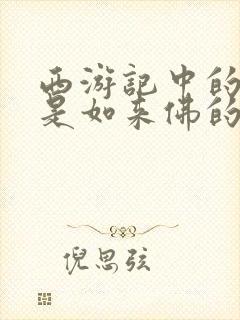 西游记中的
是如来佛的
倪思弦